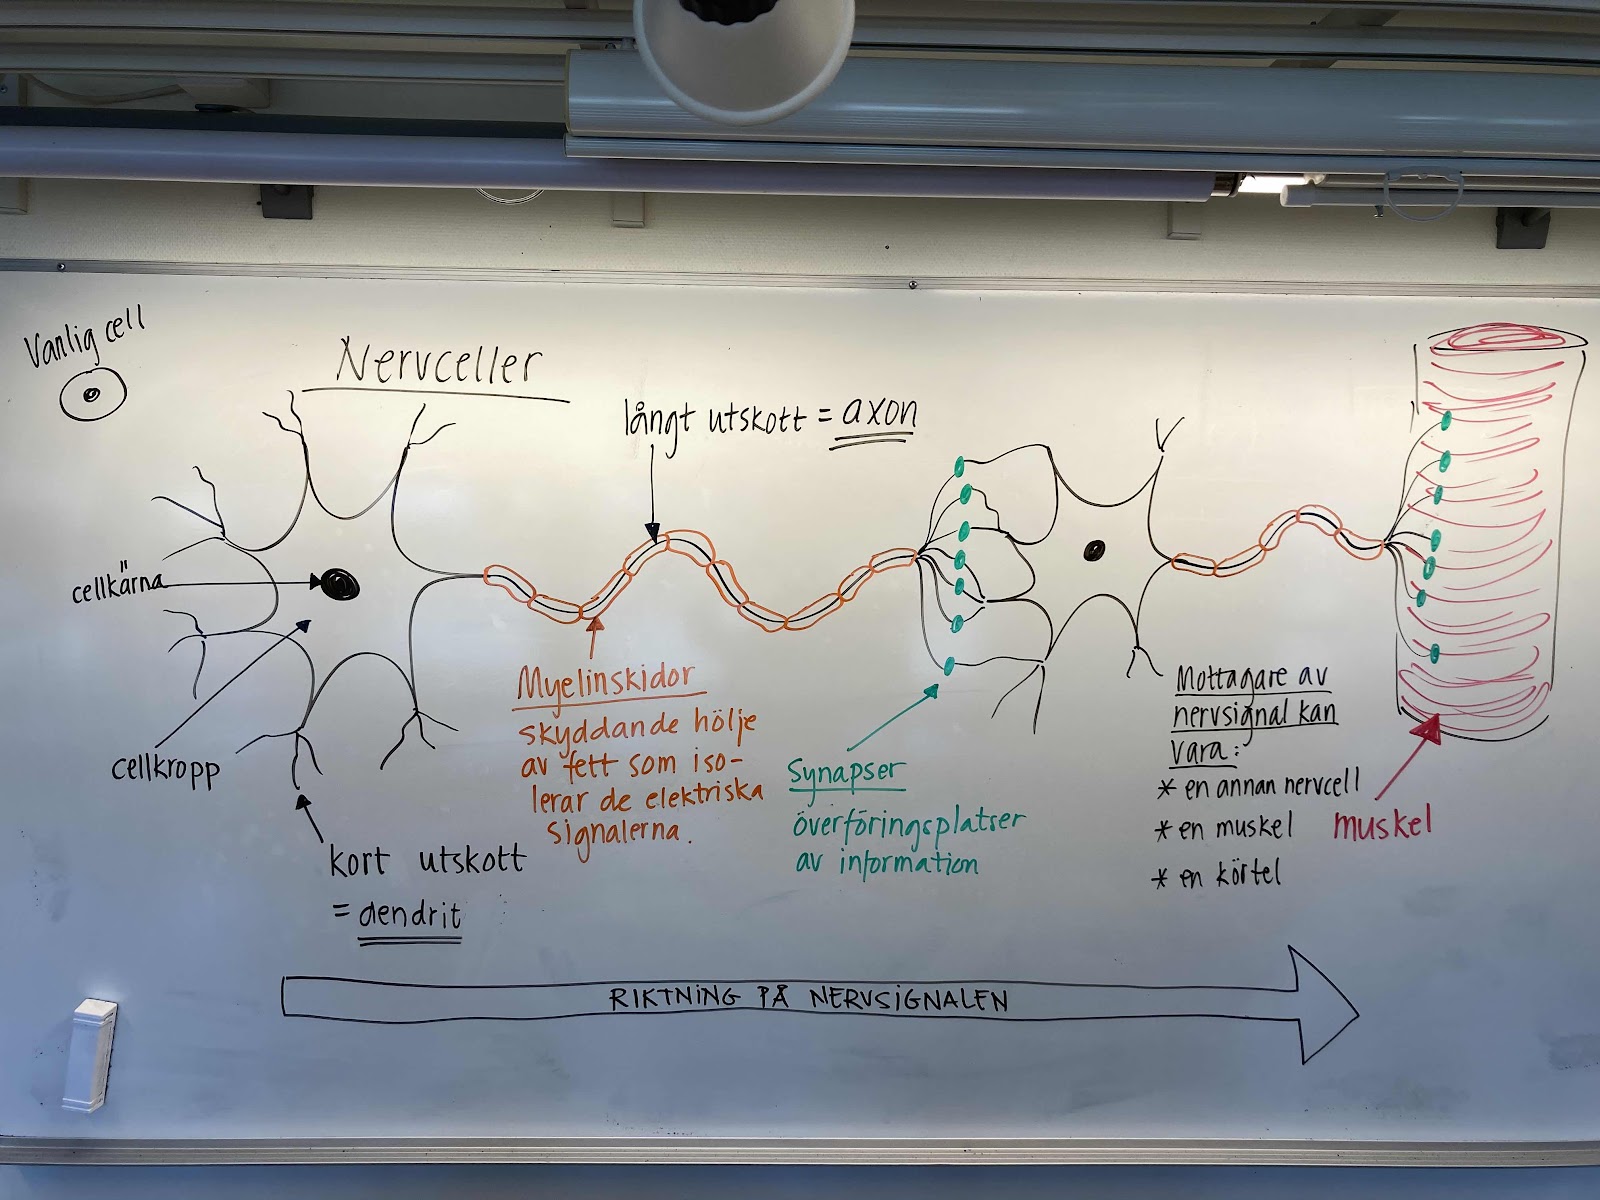 Vanlig cell
Nervceller
långt utskott = axon
cellkärna
cellkropp
kort utskott
= dendrit
Myelinskidor
skyddande hölje
av fett som iso-
lerar de elektriska
signalerna.
Synapser
överföringsplatser
av information
Mottagare av
nervsignal kan
vara:
* en annan nervcell
* en muskel
* en körtel
muskel
RIKTNING PÅ NERVSIGNALEN